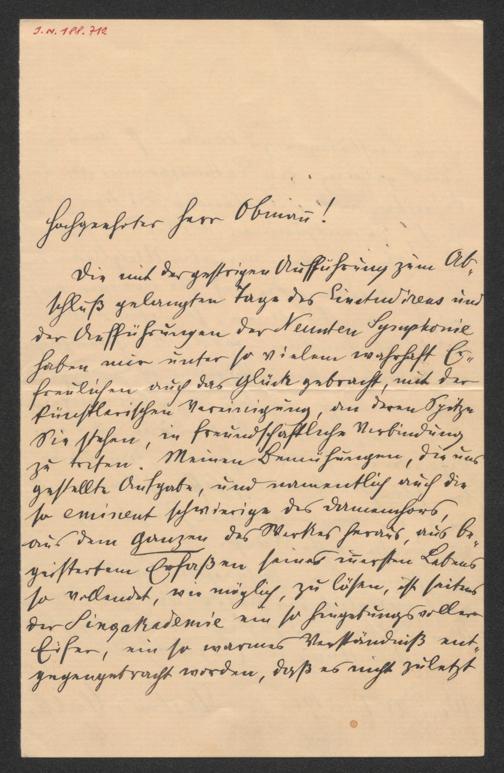 J. N. 188.712
Hochgeehrter Herr Obmann!
Die mit der gestrigen Aufführung zum Ab-
schluß gelangten Tage des Einstudirens und
der Aufführungen der Neunten Symphonie
haben mir unter so vielem wahrhaft Er-
freulichen auch das Glück gebracht, mit der
künstlerischen Vereinigung, an deren Spitze
Sie stehen, in freundschaftliche Verbindung
zu treten. Meinen Bemühungen, die uns
gestellte Aufgabe, und namentlich auch die
so eminent schwierige des Damenchors,
aus dem Ganzen des Werkes heraus, aus be-
geistertem Erfaßen seines innersten Lebens
so vollendet, wie möglich, zu lösen, ist seitens
der Singakademie ein so hingebungsvoller
Eifer, ein so warmes Verständniß ent-
gegengebracht worden, daß es nicht zuletzt